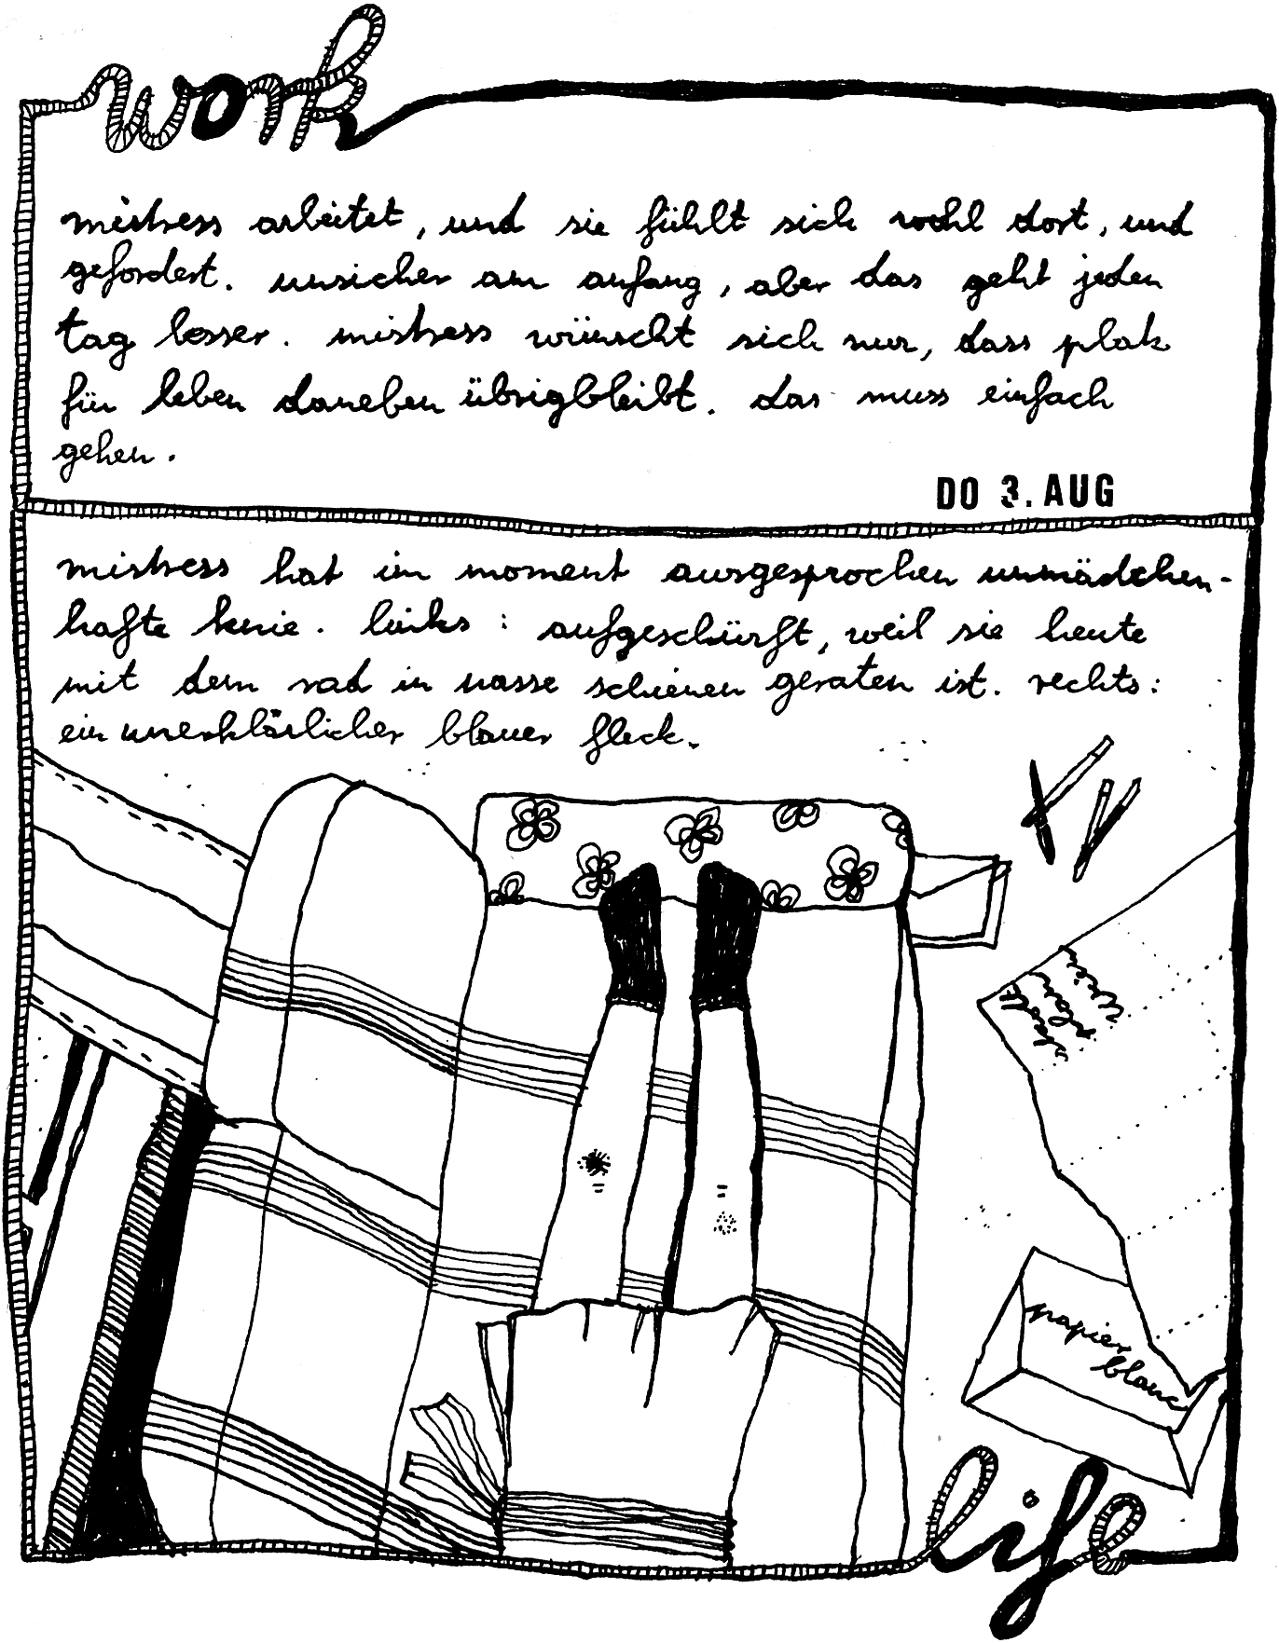 work
mistress arbeitet, und sie fühlt sich wohl dort, und
gefordert. unsicher am anfang, aber das geht jeden
tag besser. mistress wünscht sich nur, dass platz
für leben daneben übrigbleibt. das muss einfach
gehen.
DO 3. AUG
mistress hat im moment ausgesprochen unmädchen-
hafte knie. links: aufgeschürft, weil sie heute
mit dem rad in nasse schienen geraten ist. rechts:
ein unerklärlicher blauer fleck.
wien
plan
stadt
papier
blanc
life